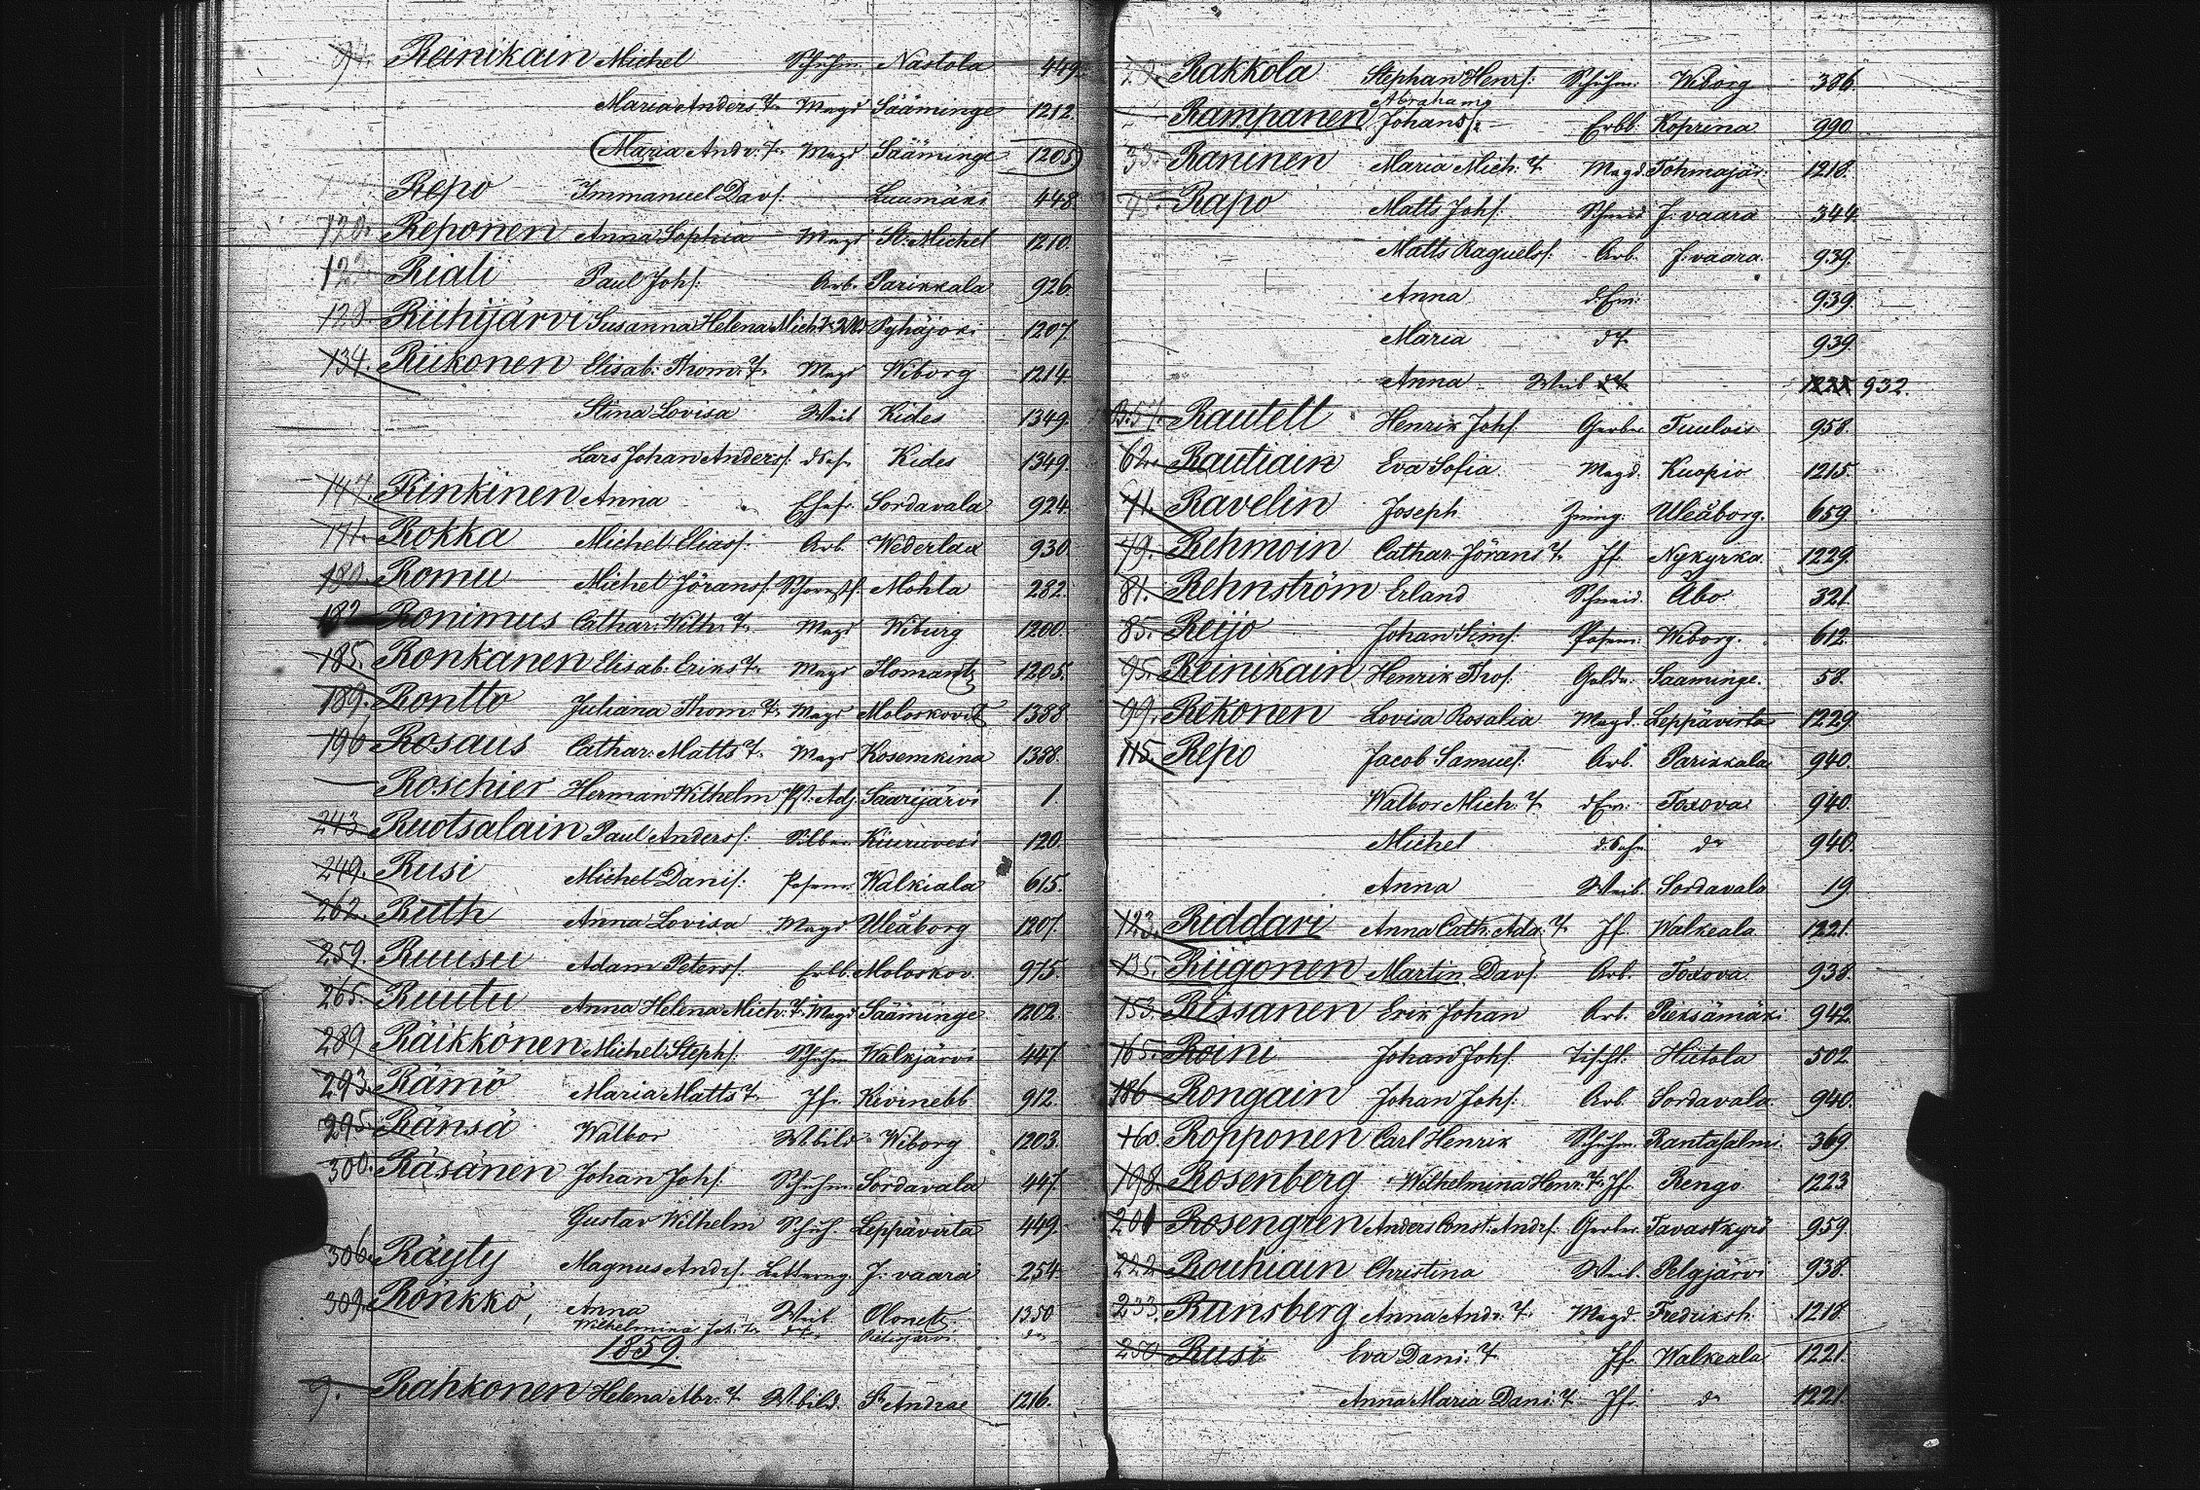 94. Reinikain Michel Schuhm. Nastola 449.
Maria Anders T. Magd Sääminge 1212.
Maria Andr. T. Magd Sääminge 1205
Repo Immanuel Davs. Luumäki 448
120. Reponen Anna Sophia Magd St. Michel 1210.
122. Riali Paul Johs. Arb. Parikkala 926.
128. Riihijärvi Susanna Helena Mich. T. Pyhäjoki 1207.
134. Riikonen Elisab. Thom. T. Magd Wiborg 1214
Stina Lovisa Weib Kides 1349.
Lars Johan Anderss. d. Sohn Kides 1349.
147. Rinkinen Anna Ehefr. Sordavala 924.
171. Rokka Michel Eliass. Arb. Wederlax 930.
180. Romu Michel Jöranss. Mohla 282.
182 Ronimus Cathar. Wilh. T. Magd Wiburg 1200.
185. Ronkanen Elisab. Eriks T. Magd Ilomantz 1205.
189. Rontto Juliana Thom. T. Magd Moloskovitz 1388
196 Rosaus Cathar. Matts T. Magd Kosemkina 1388.
Roschier Herman Wilhelm Pst. Adj. Saarijärvi 1.
243 Ruotsalain Paul Anderss. Silber Kiuruvesi 120.
249. Rusi Michel Danis. Posam. Walkiala 615.
262. Ruth Anna Lovisa Magd Uleåborg 1207.
259. Ruusu Adam Peterss. Erbb. Moloskov. 975.
265. Ruutu Anna Helena Mich. T. Magd Sääminge 1202.
289 Räikkönen Michel Stephs. Schuhm Walkjärvi 447.
293. Rämö Maria Matts T. Jfr. Kivinebb 912.
295. Ränsä Walbor Wbild. Wiborg 1203.
300. Räsänen Johan Johs. Schuhm Sordavala 447.
Gustav Wilhelm Schuh. Leppävirta 449.
306. Räyty Magnus Andrs. J: vaara 254
309. Rönkkö, Anna Weib Olonetz 1350
Wilhelmina Joh. T. Pielisjärvi do
1859.
9. Rahkonen Helena Abr. T. Wbild. St Andrae 1216.
29. Rakkola Stephan Henrs. Schuhm. Wiborg 386.
Abrahams
Rampanen Johanss. Erbb. Koprina 990.
33. Raninen Maria Mich. T. Magd. Tohmajär. 1218.
45. Rapo Matts Johs. Schneid J. vaara 344.
Matts Raguelss. Arb. J. vaara. 939.
Anna d. Em. 939.
Maria d T. 939.
Anna Weib 932.
57. Rautell Henrik Johs. Gerber Tuulois 958.
62. Rautiain Eva Sofia Magd. Kuopio 1215.
71. Ravelin Joseph Uleåborg. 659.
79. Rehmoin Cathar. Jörans T. Jf. Nykyrka. 1229.
81. Rehnström Erland Schneid. Åbo. 321.
85. Reijo Johan Sims. Posam. Wiborg. 612.
95. Reinikain Henrik Ths. Golds. Saaminge. 58.
99. Rekonen Lovisa Rosalia Magd. Leppävirta 1229.
115. Repo Jacob Samuels. Arb. Parikkala 940.
Walbor Mich. T. d Em. Toxova 940.
Michel d. Sohn do 940.
Anna Weib. Sordavala 19.
123. Riddari Anna Cath. Ada. T. Jf. Walkeala 1221.
135. Riigonen Martin Davs. Arb. Toxova 938.
153. Rissanen Erik Johan Arb. Pieksämäki 942.
165. Roini Johan Johs. Tischl. Hiitola 502.
186 Rongain Johan Johs. Arb. Sordavala 940.
160. Ropponen Carl Henrik Schuhm. Rantasalmi 369
198. Rosenberg Wilhelmina Henr. T. Jf. Rengo 1223
201 Rosengren Anders Const. Andrs. Gerber Tavastkyrö 959.
222 Rouhiain Christina Weib. Pelgjärvi 938.
233. Runsberg Anna Andr. T. Magd. Fredriksh. 1218.
250 Rusi Eva Dani. T. Jf. Walkeala 1221.
Anna Maria Dani. T. Jf. do 1221.